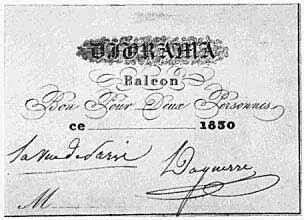 DIORAMA
Balcon
Bon Pour Deux Personnes
ce 1830
La vue de Paris Daguerre
M